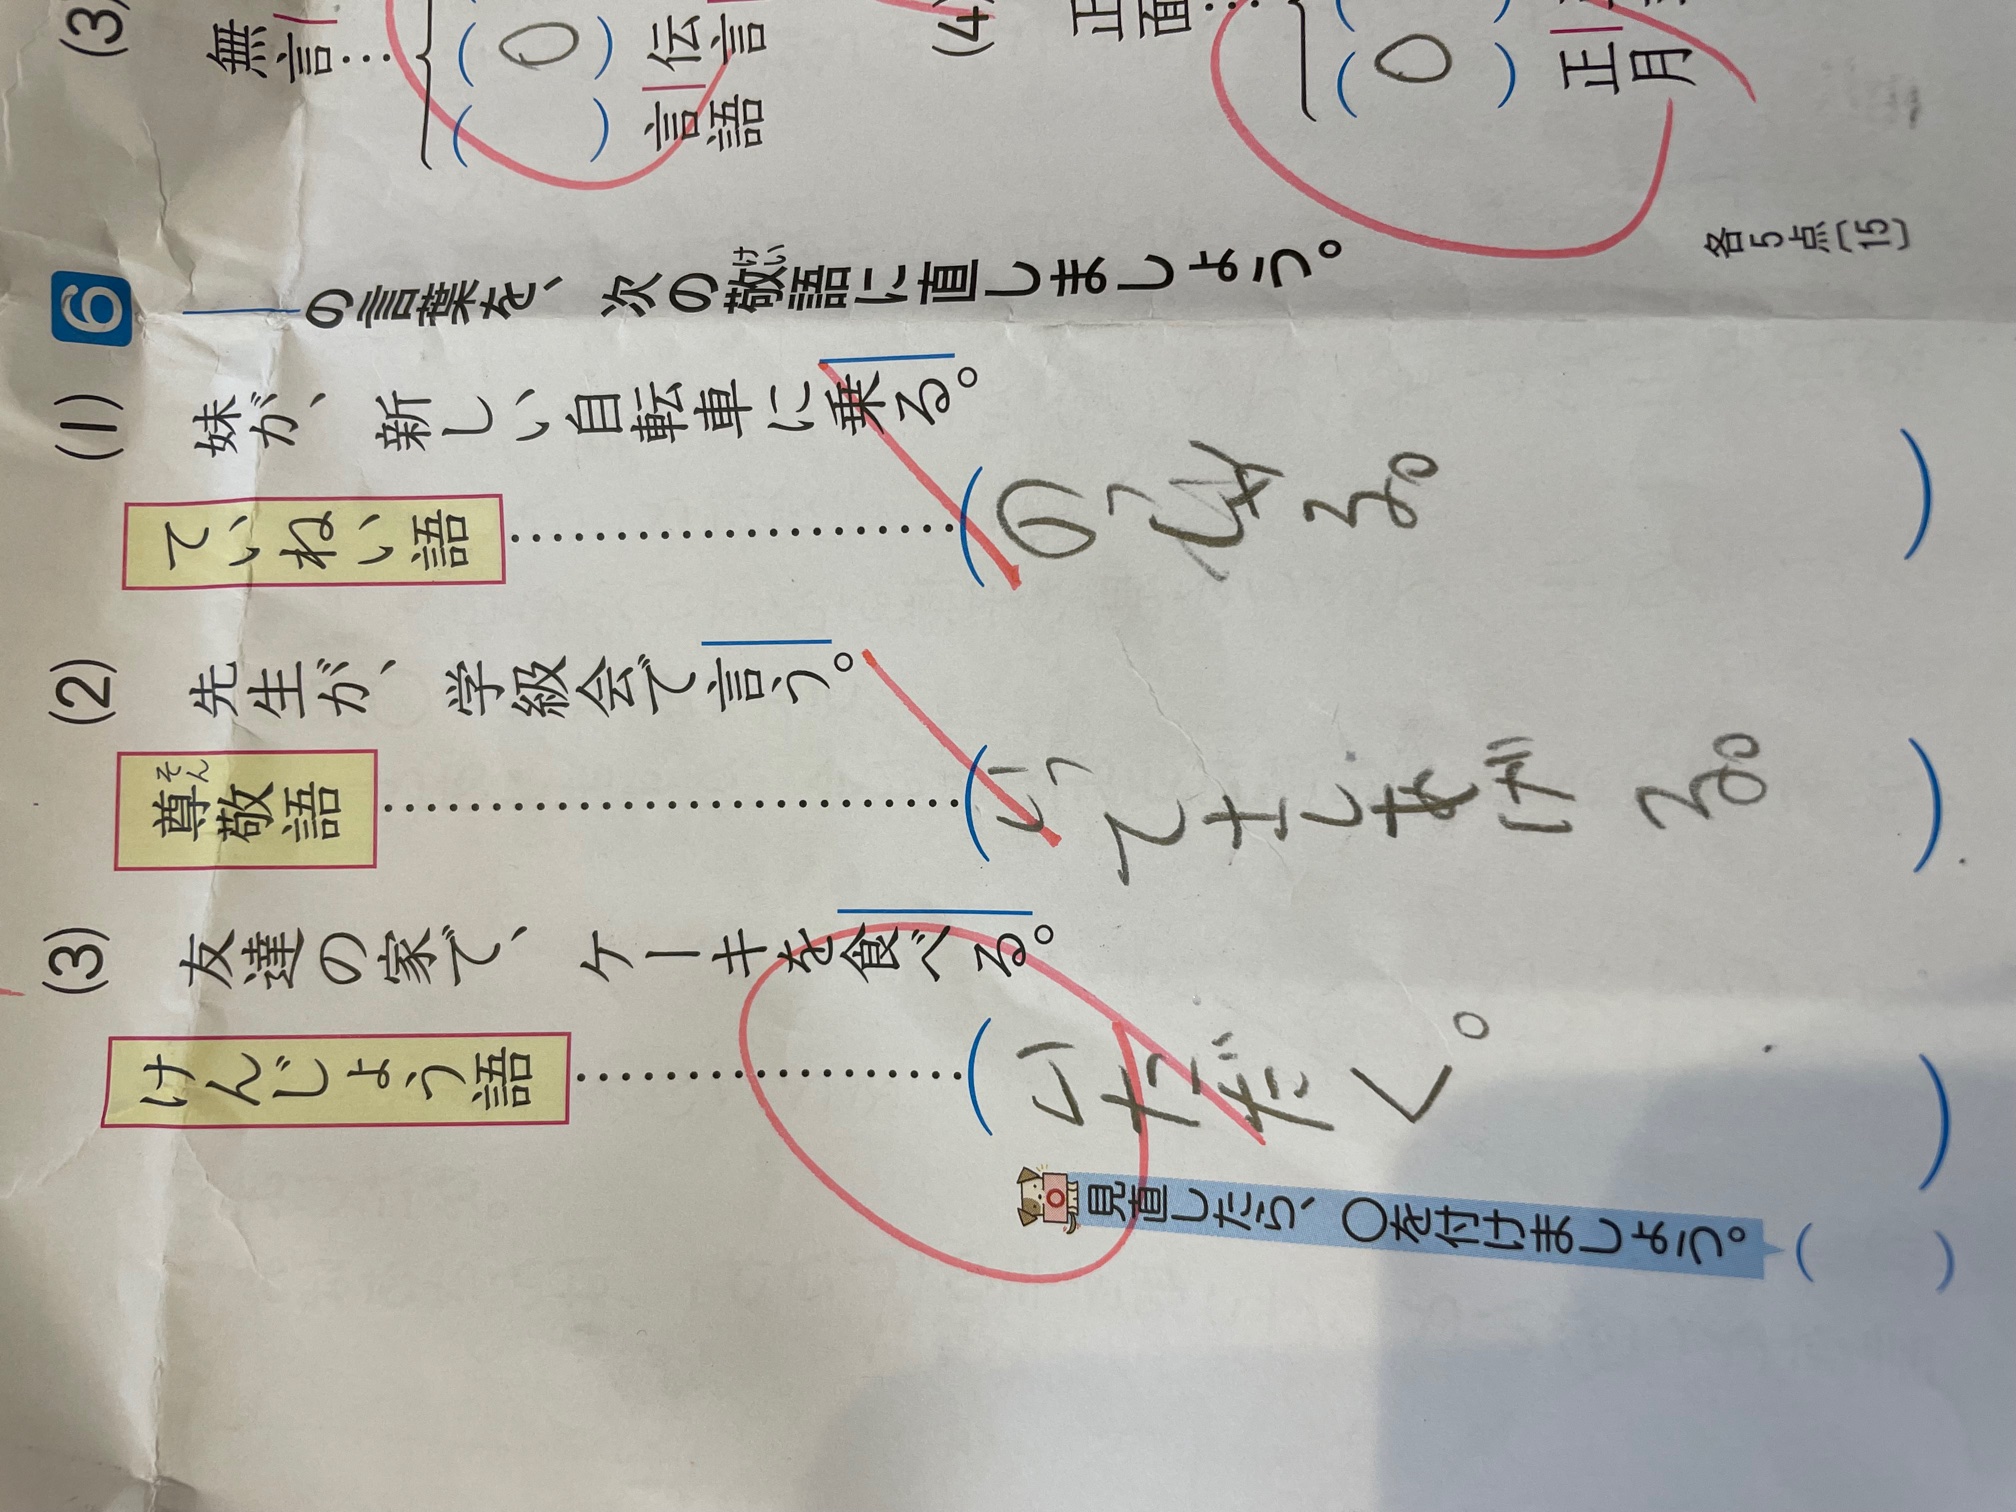 (3) 無言……
(○) 伝言
( ) 言語
(4) 正面……
(○) 正月
6 の言葉を、次の敬語に直しましょう。
けい
各5点〔15〕
(1) 妹が、新しい自転車に乗る。
ていねい語
(2) 先生が、学級会で言う。
尊敬語
そん
(いってさしあげる。)
(3) 友達の家で、ケーキを食べる。
けんじょう語
(いただく。)
見直したら、○を付けましょう。
( )